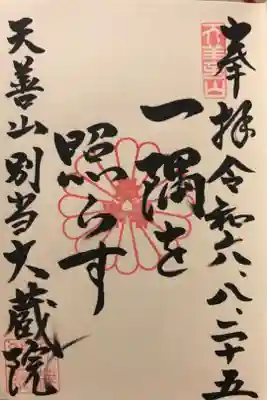 奉拝令和六、八、二十五
一隅を
照らす
天善山別当大蔵院